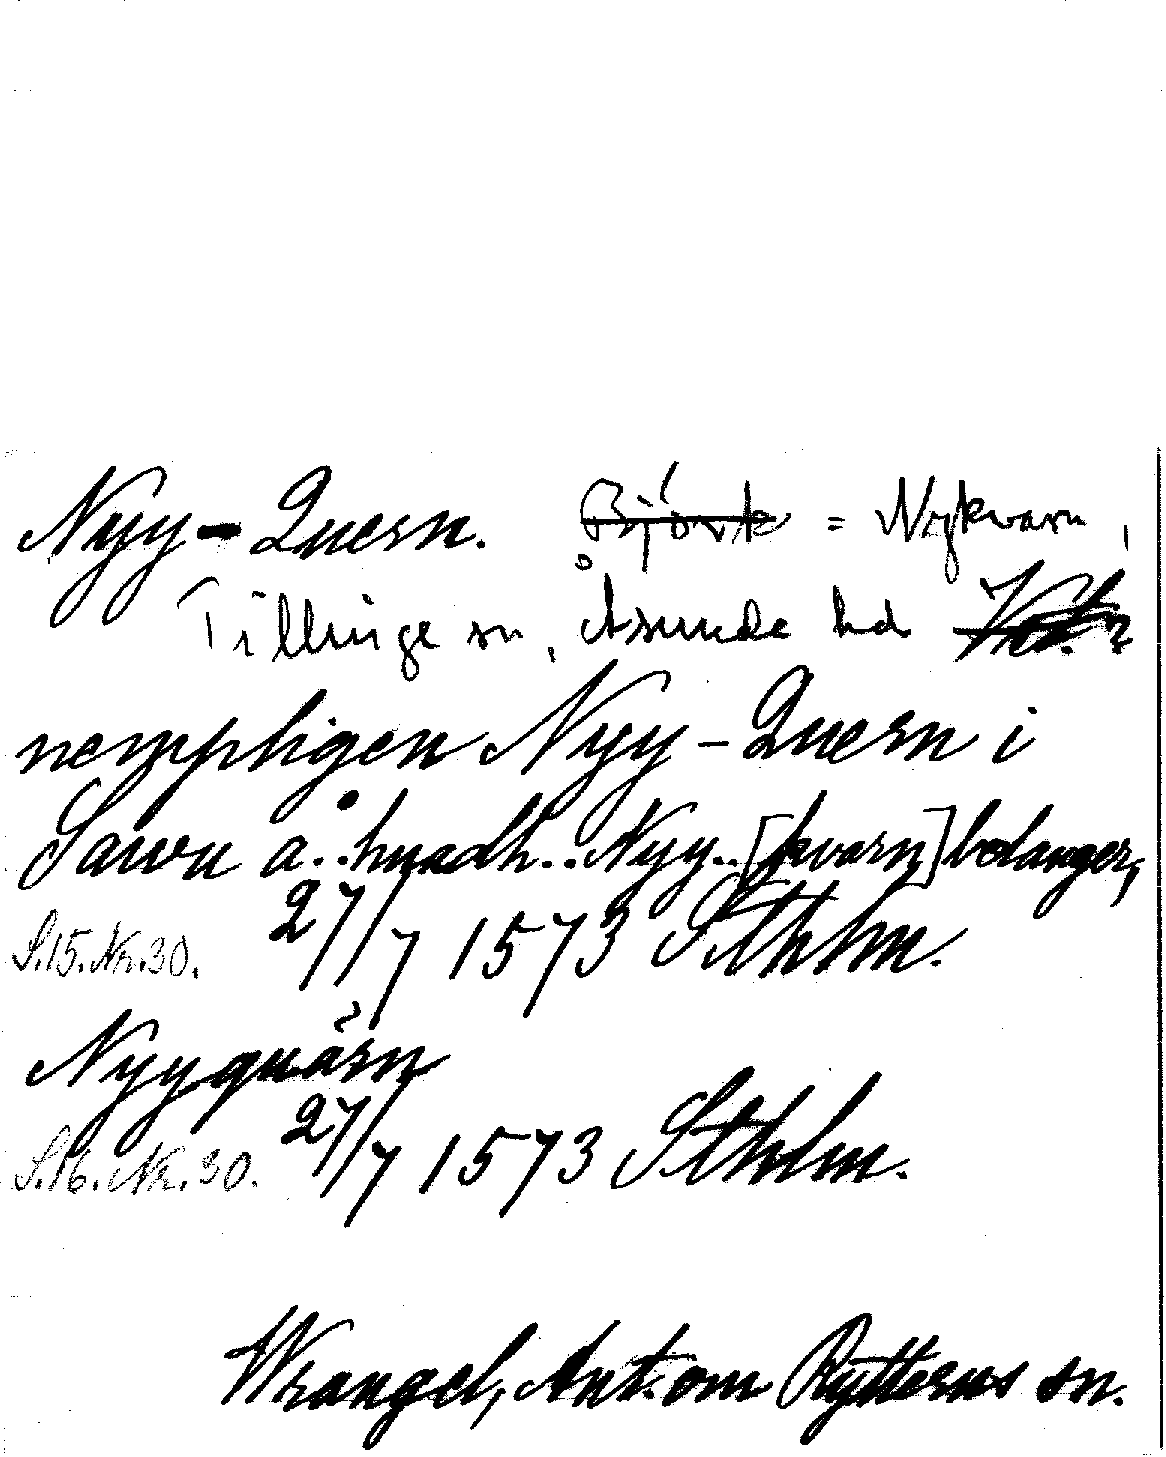 Nyy-Quern. Björk = Nykvarn,
Tillinge sn, Åsunda hd
nempligen Nyy-Quern i
Sawu å..huadh..Nyy..[kvarn] belanger,
S.15.Nr.30. 27/7 1573 Sthlm.
Nyyquärn
S.16.Nr.30. 27/7 1573 Sthlm.
Wrangel, Ant. om Rytterns sn.